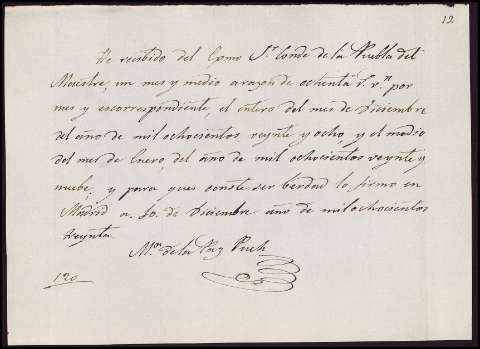 12
He recibido del Exmo Sr. Conde de la Puebla del
Maestre, un mes y medio a razon de ochenta rs. vn. por
mes y es correspondiente, el entero del mes de Diciembre
del año de mil ochocientos veynte y ocho, y el medio
del mes de Enero, del año de mil ochocientos veynte y
nuebe, y para q.e conste ser berdad lo firmo en
Madrid a 30. de Diciembre año de mil ochocientos
treynta.
Ma. de la Paz Puch
120